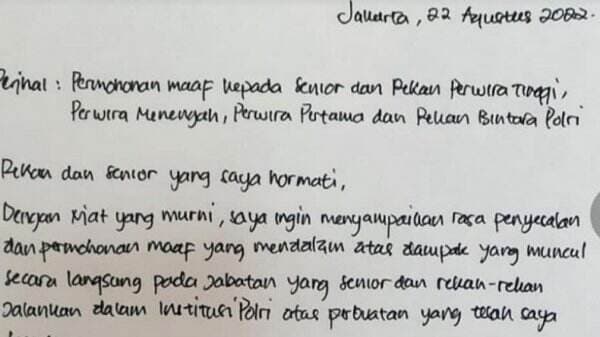 Jakarta, 22 Agustus 2022.
Perihal : Permohonan maaf kepada Senior dan Rekan Perwira Tinggi,
Perwira Menengah, Perwira Pertama dan Rekan Bintara Polri
Rekan dan senior yang saya hormati,
Dengan Niat yang murni, saya ingin menyampaikan rasa penyesalan
dan permohonan maaf yang mendalam atas dampak yang muncul
secara langsung pada Jabatan yang senior dan rekan-rekan
Jalankan dalam Institusi Polri atas perbuatan yang telah saya